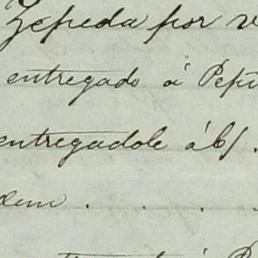 Zepeda por v
entregado á Pepi
entregadole á 6/.
dem . . . .